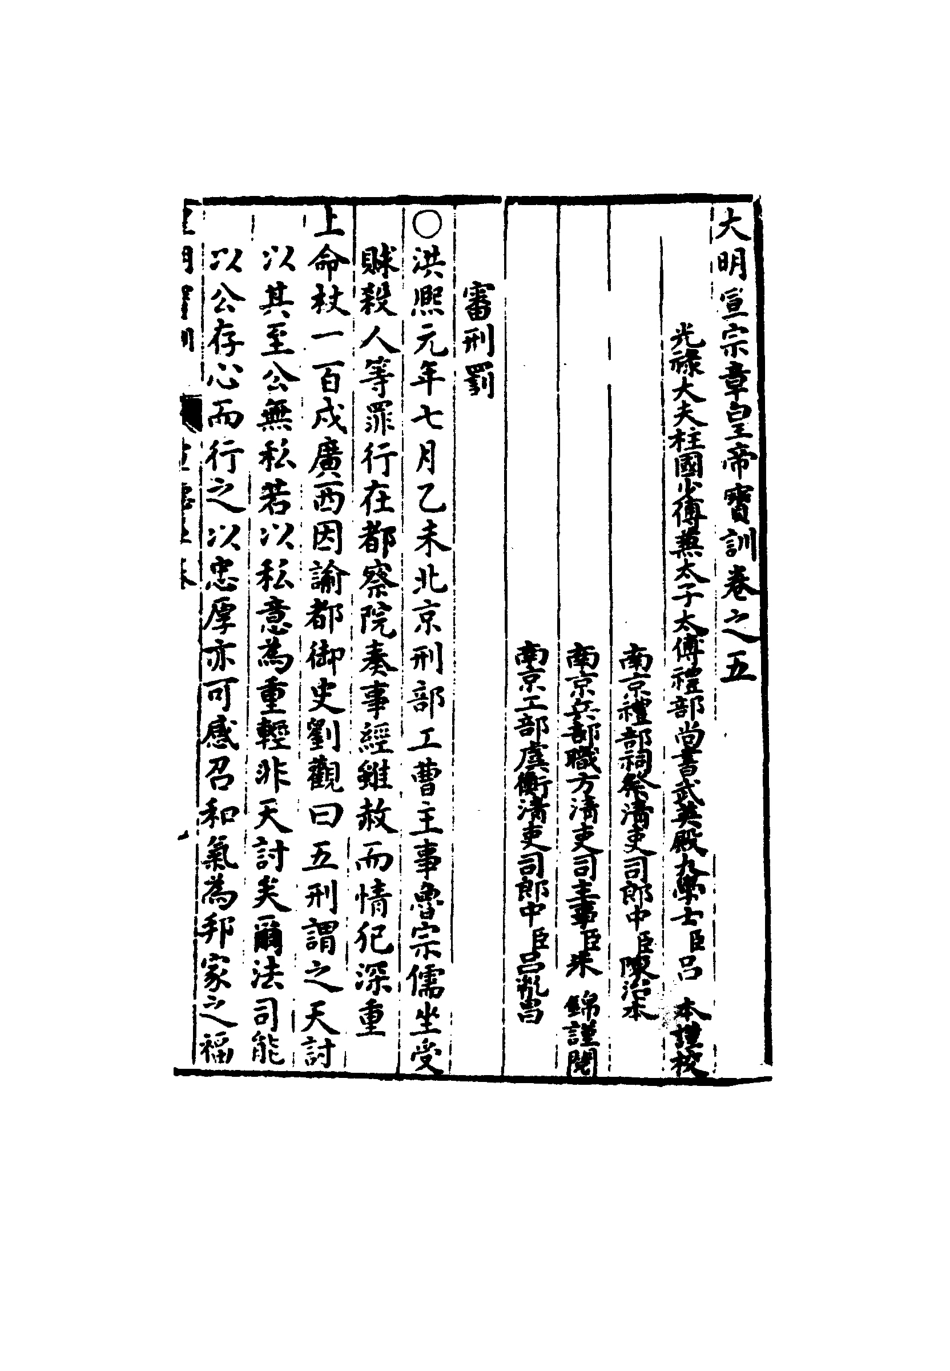 大明宣宗章皇帝寶訓卷之五
光祿大夫柱國少傅兼太子太傅禮部尚書武英殿大學士臣呂 本謹校
南京禮部祠祭清吏司郎中臣陳治本
南京兵部職方清吏司主事臣朱 錦謹閱
南京工部虞衡清吏司郎中臣呂胤昌
審刑罰
○洪熙元年七月乙未北京刑部工曹主事魯宗儒坐受
賕殺人等罪行在都察院奏事經雖赦而情犯深重
上命杖一百戍廣西因諭都御史劉觀曰五刑謂之天討
以其至公無私若以私意為重輕非天討矣爾法司能
以公存心而行之以忠厚亦可感召和氣為邦家之福